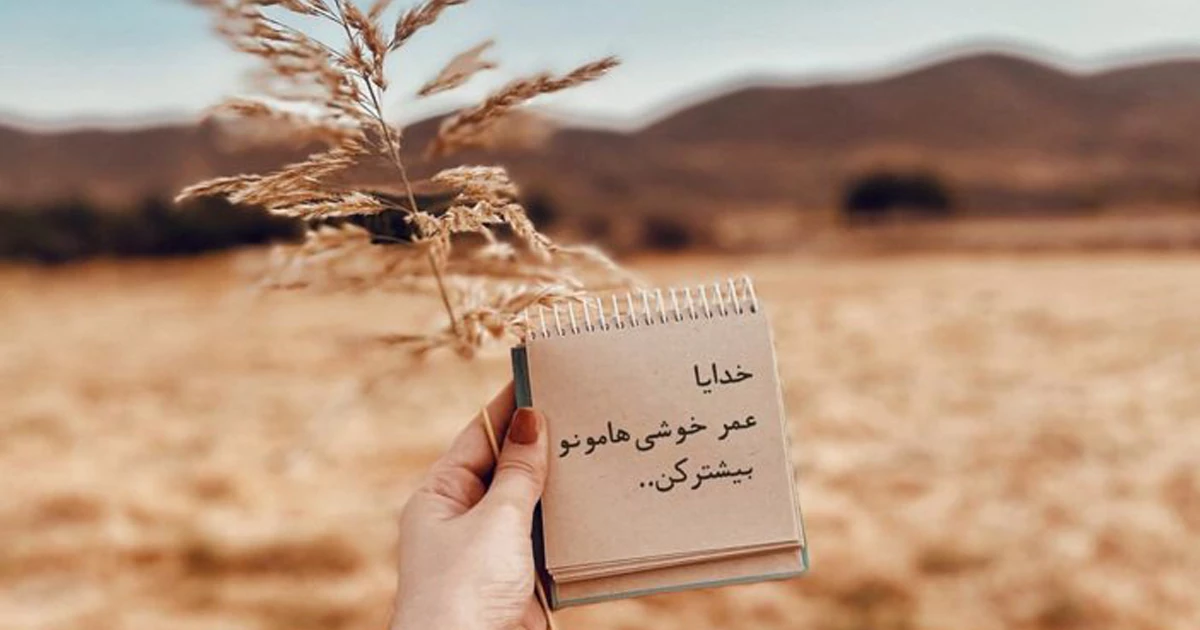 خدایا
عمر خوشی هامونو
بیشترکن..